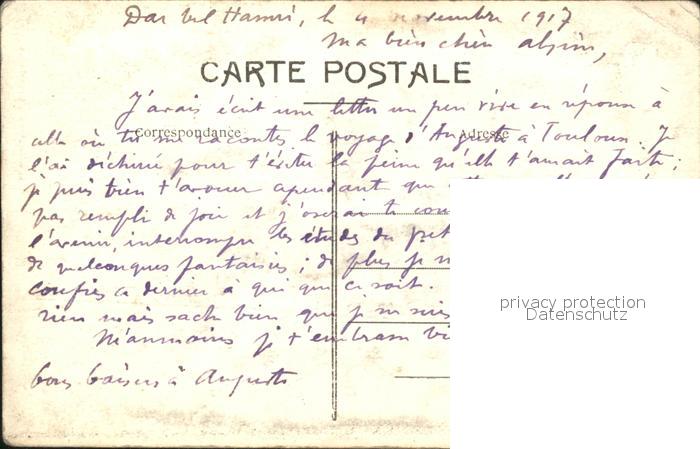 Dar bel Hamri, le 4 novembre 1917
Ma bien chère
CARTE POSTALE
J'avais écrit une lettre un peu vive en réponse à
Correspondance
Adresse
celle où tu me racontes le voyage d'Auguste à Toulouse. Je
l'ai déchirée pour t'éviter la peine qu'elle t'aurait faite ;
je puis bien t'avouer cependant que
pas rempli de joie et j'oserai te
l'avenir, interrompre les études du petit
de quelconques fantaisies ; de plus je
confies ce dernier à qui que ce soit.
rien mais sache bien que je me suis
Néanmoins je t'embrasse
bons baisers à Auguste
privacy protection
Datenschutz